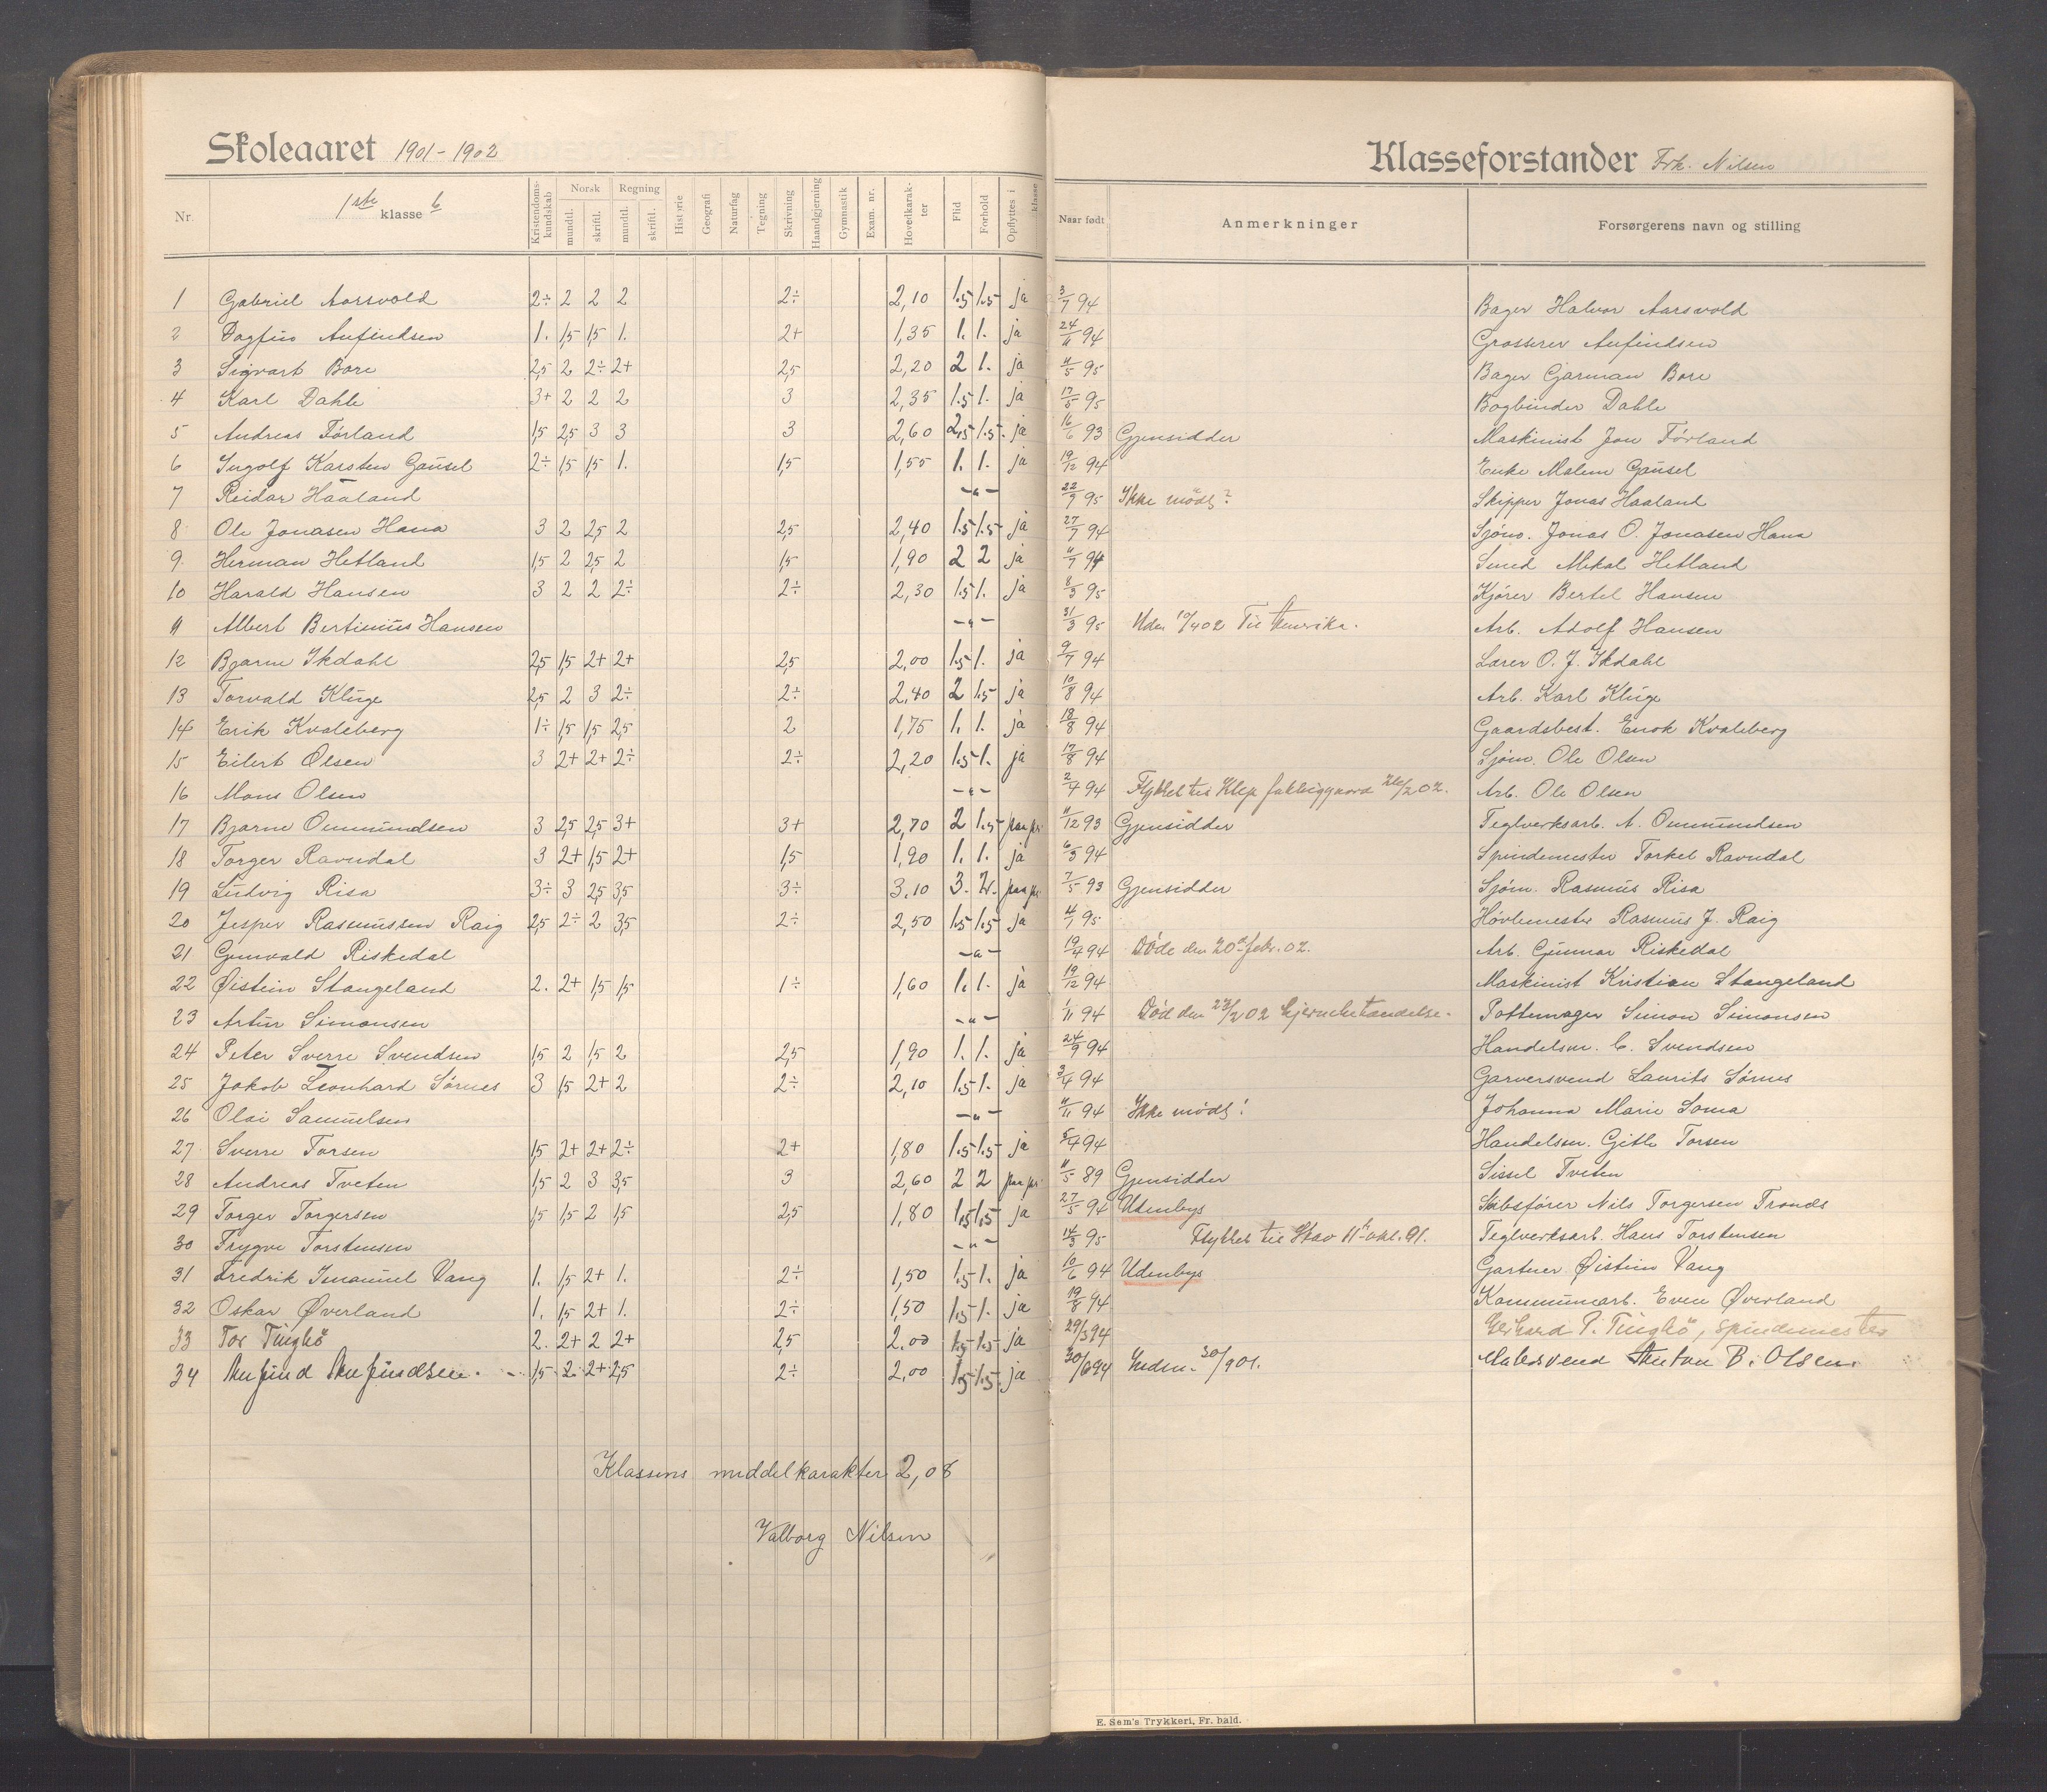 Skoleaaret 1901-1902
Klasseforstander Frk. Nilsen
Nr. 1ste klasse b Kristendomskundskab Norsk mundtl. skriftl. Regning mundtl. skriftl. Historie Geografi Naturfag Tegning Skrivning Haandgjerning Gymnastik Exam. nr. Hovedkarakter Flid Forhold Opflyttes i klasse Naar født Anmerkninger Forsørgerens navn og stilling
1 Gabriel Aarsvold 2÷ 2 2 2 2÷ 2,10 1.5 1.5 ja 3/7 94 Bager Halvor Aarsvold
2 Dagfin Anfindsen 1. 1,5 1,5 1. 2+ 1,35 1. 1. ja 24/11 94 Grosserer Anfindsen
3 Sigvart Bore 2,5 2 2÷ 2+ 2,5 2,20 2 1. ja 11/5 95 Bager Garman Bore
4 Karl Dahle 3+ 2 2 2 3 2,35 1.5 1. ja 17/5 95 Bogbinder Dahle
5 Andreas Førland 1,5 2,5 3 3 3 2,60 2,5 1.5 ja 16/6 93 Gjensidder Maskinist Jon Førland
6 Ingolf Karsten Gausel 2÷ 1,5 1,5 1. 1,5 1,55 1. 1. ja 19/12 94 Enke Malene Gausel
7 Reidar Haaland -„- 22/7 95 Ikke mødt? Skipper Jonas Haaland
8 Ole Jonasen Hana 3 2 2,5 2 2,5 2,40 1.5 1.5 ja 27/7 94 Sjøm. Jonas O. Jonasen Hana
9. Herman Hetland 1,5 2 2,5 2 1,5 1,90 2 2 ja 11/7 94 Smed Mikal Hetland
10 Harald Hansen 3 2 2 2÷ 2÷ 2,30 1.5 1. ja 8/3 95 Kjører Bertel Hansen
11 Albert Bertinius Hansen -„- 31/3 95 Uden 10/4 02 Til Amerika. Arb. Adolf Hansen
12 Bjarne Ikdahl 2,5 1,5 2+ 2+ 2,5 2,00 1.5 1. ja 9/7 94 Lærer O. J. Ikdahl
13 Torvald Kluge 2,5 2 3 2÷ 2÷ 2,40 2 1.5 ja 10/8 94 Arb. Karl Kluge
14 Erik Kvaleberg 1÷ 1,5 1,5 2,5 2 1,75 1. 1. ja 18/8 94 Gaardsbest. Enok Kvaleberg
15 Eilert Olsen 3 2+ 2+ 2÷ 2÷ 2,20 1.5 1. ja 17/8 94 Sjøm. Ole Olsen
16 Mons Olsen -„- 2/4 94 Flyttet til Klep Arb. Ole Olsen
17 Bjarne Ommundsen 3 2,5 2,5 3+ 3+ 2,70 2 1.5 paa pr. 11/12 93 Gjensidder Teglverksarb. A. Ommundsen
18 Torger Ravndal 3 2+ 1,5 2+ 1,5 1,90 1. 1. ja 6/3 94 Spindemester Torkel Ravndal
19 Ludvig Risa 3÷ 3 2,5 3,5 3÷ 3,10 3. 2. paa pr. 7/5 93 Gjensidder Sjøm. Rasmus Risa
20 Jesper Rasmussen Raig 2,5 2÷ 2 3,5 2÷ 2,50 1.5 1.5 ja 4/1 95 Høvlemester Rasmus J. Raig
21 Gunvald Riskedal -„- 19/4 94 Døde den 20de febr. 02. Arb. Gunnar Riskedal
22 Øistein Stangeland 2. 2+ 1,5 1,5 1÷ 1,60 1. 1. ja 19/12 94 Maskinist Kristian Stangeland
23 Artur Simonsen -„- 1/11 94 Død den 27/2 02 hjernebetændelse. Pottemager Simon Simonsen
24 Peter Sverre Svendsen 1,5 2 1,5 2 2,5 1,90 1. 1. ja 24/9 94 Handelsm. C. Svendsen
25 Jakob Leonhard Sørnes 3 1,5 2+ 2 2÷ 2,10 1.5 1. ja 3/4 94 Garversvend Laurits Sørnes
26 Olai Samuelsen -„- 11/11 94 Ikke mødt! Johanna Marie Soma
27 Sverre Torsen 1,5 2+ 2+ 2÷ 2+ 1,80 1.5 1.5 ja 5/4 94 Handelsm. Gitle Torsen
28 Andreas Tveten 1,5 2 3 3,5 3 2,60 2 2 paa pr. 11/5 89 Gjensidder Sissel Tveten
29 Torger Torgersen 1,5 1,5 2 1,5 2,5 1,80 1,5 1,5 ja 27/5 94 Udenbys Skibsfører Nils Torgersen Tronds
30 Trygve Torstensen -„- 14/3 95 Flyttet til Stav 11te okt. 01. Teglverksarb. Hans Torstensen
31 Fredrik Imanuel Vang 1. 1,5 2+ 1. 2÷ 1,50 1.5 1. ja 10/6 94 Udenbys Gartner Øistein Vang
32 Oskar Øverland 1. 1,5 2+ 1. 2÷ 1,50 1.5 1. ja 19/8 94 Kommunearb. Even Øverland
33 Tor Tingbø 2. 2+ 2 2+ 2,5 2.00 1.5 1.5 ja 29/3 94 Gerhard P. Tingbø, Spindemester
34 Anfind Anfindsen. 1,5 2. 2+ 2,5 2÷ 2,00 1.5 1.5 ja 30/6 94 Indm. 30/9 01. Malersvend Anton B. Olsen.
Klassens middelkarakter 2,08
Valborg Nilsen
E. Sem's Trykkeri, Fr. hald.